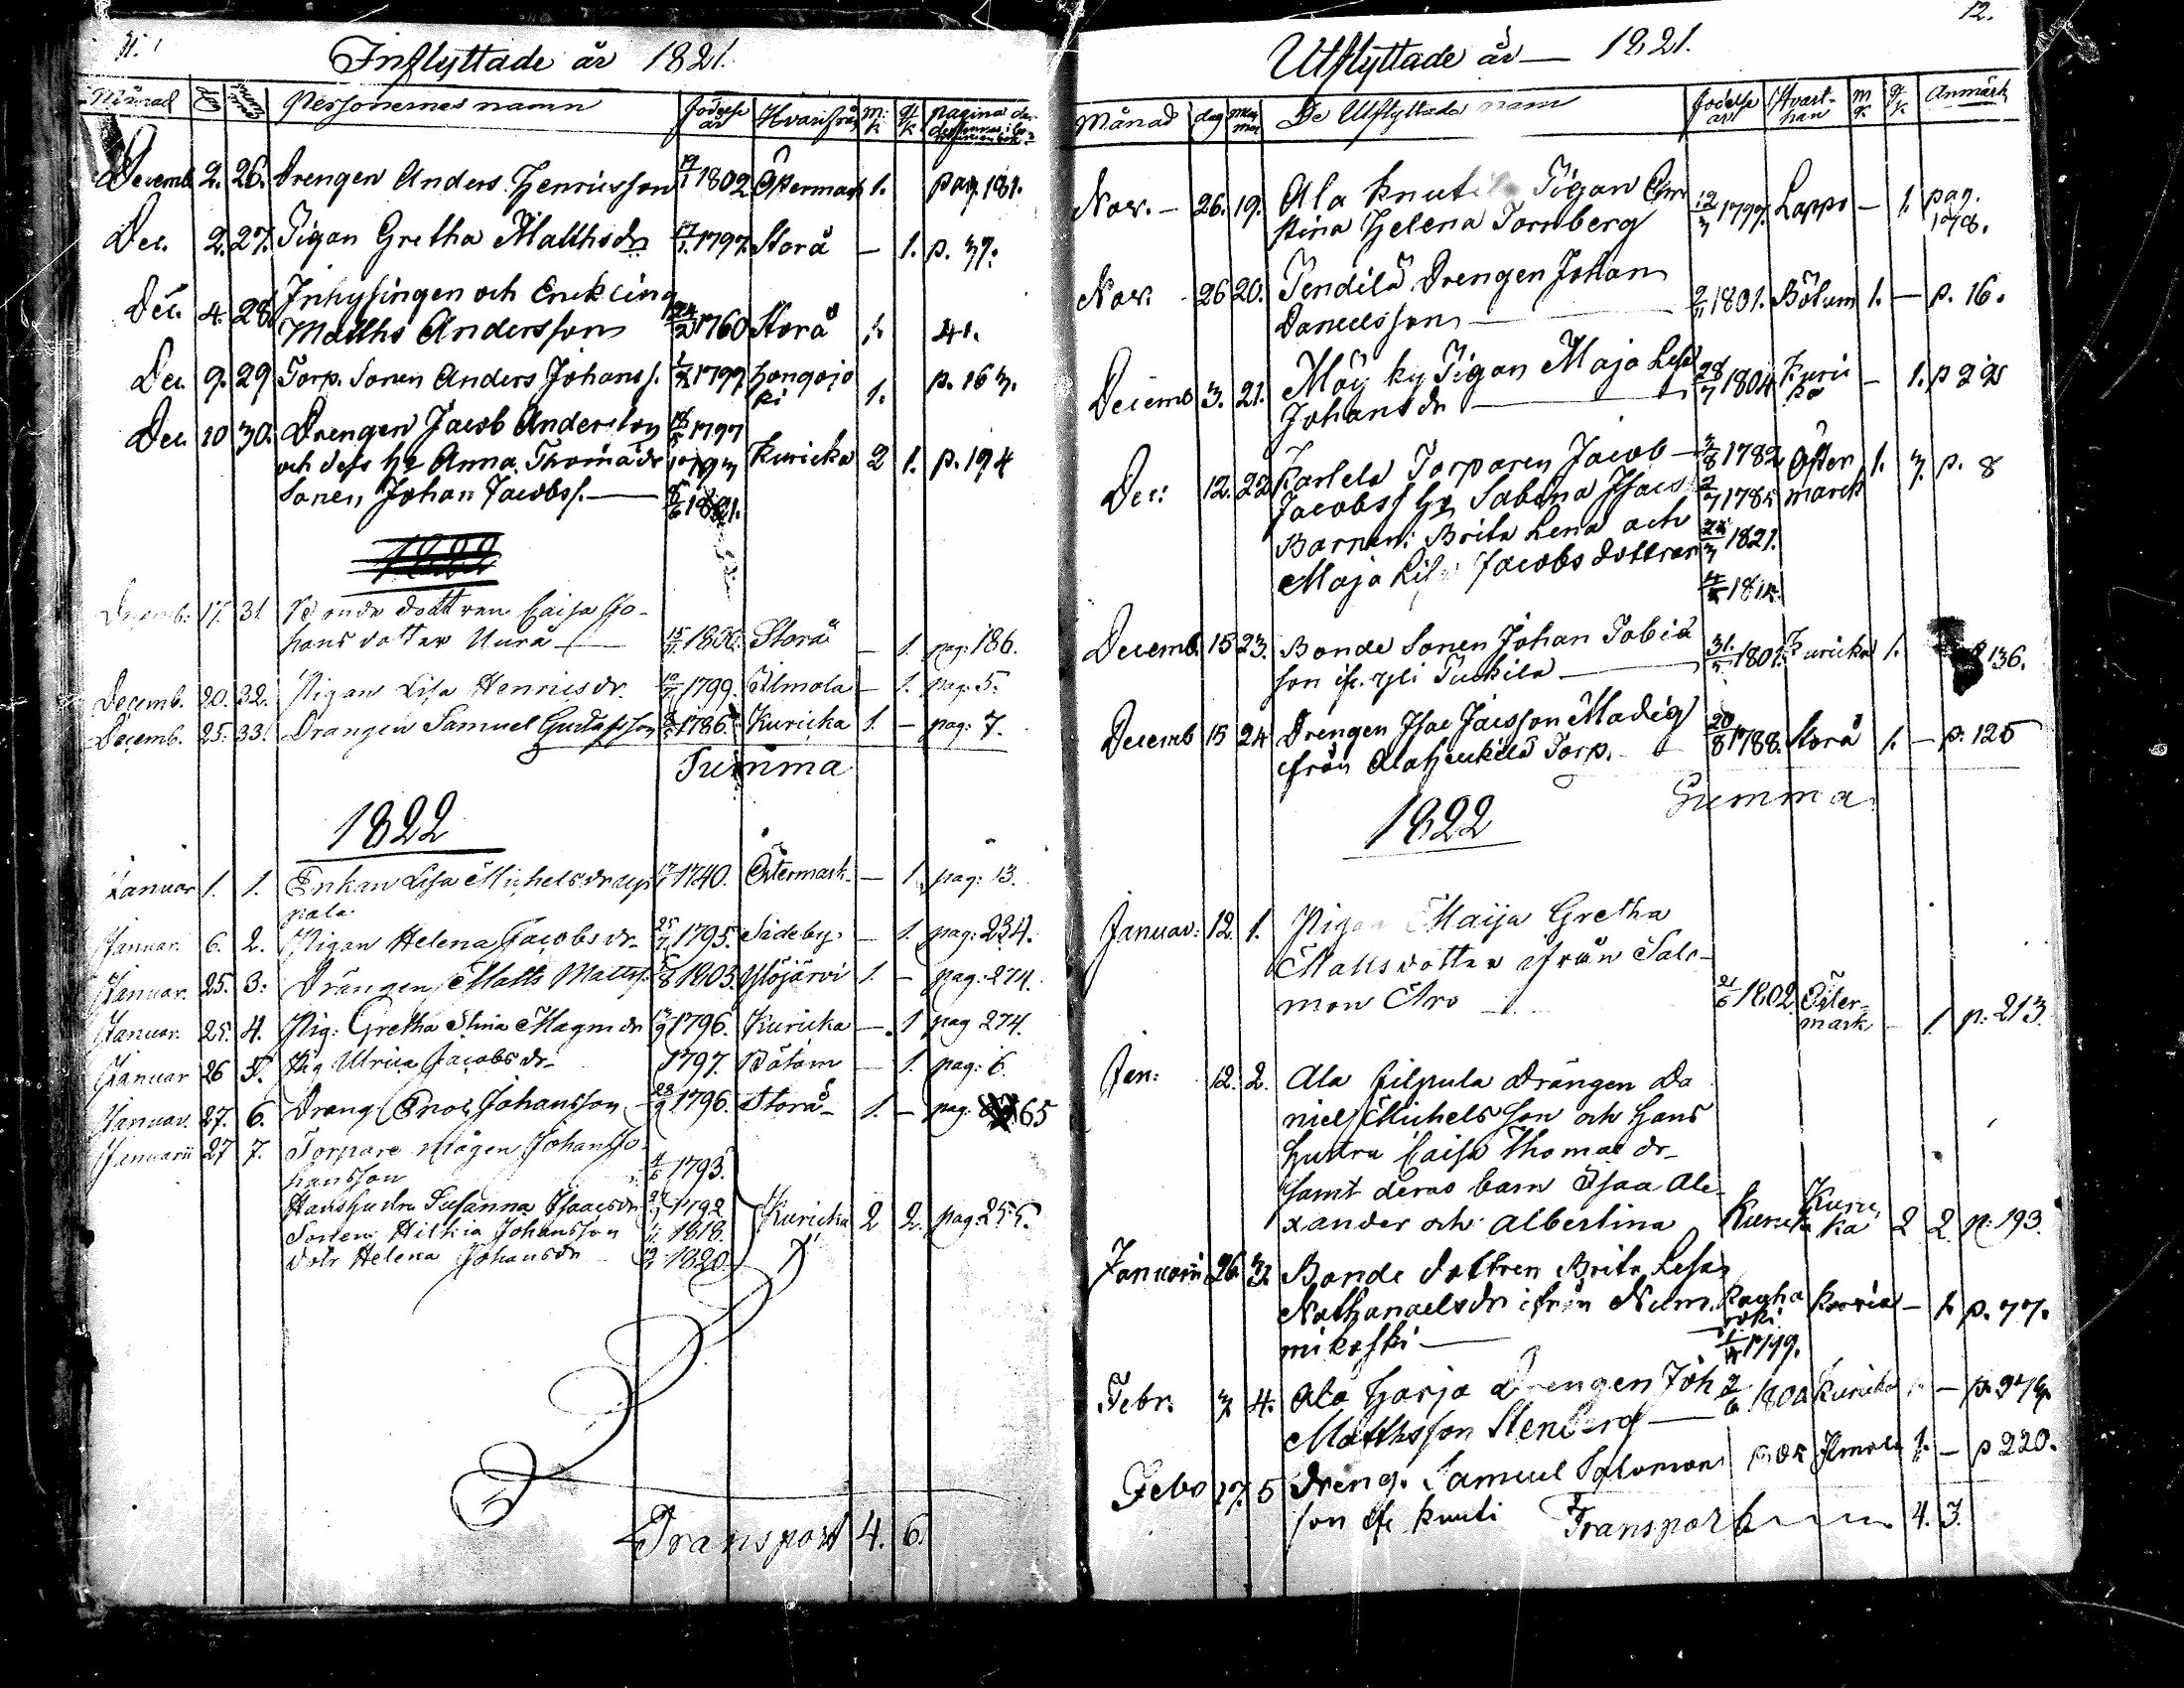 Inflyttade år 1821.
Månad Personernas namn födelse år Hvarifrån m. k q. k pagina
Decemb. 2. 26. Drengen Anders Henricsson 1802 Östermark 1. pag. 181.
Dec. 2. 27. Pigan Gretha Matthsdr 1797. Storå — 1. p. 37.
Dec. 4. 28. Inhysingen och Enkling
Matths Andersson 1760 Storå 1. 41.
Dec. 9. 29 Torp. Sonen Anders Johanss. 1799 Hongojo
ki 1. p. 163.
Dec. 10 30. Drengen Jacob Andersson 1797
och dess Hu Anna Thomædr Kuricka 2 1. p. 194
Sonen Johan Jacobss. — 1821.
Decemb: 17. 31 Bonde dottren Caisa Jo-
hans dotter Uurå — 15/11 1800. Storå — 1. pag: 186.
Decemb. 20. 32. Pigan Lisa Henricsdr. 1799. Ilmola — 1. pag: 5.
Decemb. 25. 33. Drängen Samuel Gustafsson 1786. Kuricka 1. — pag: 7.
Summa
1822
Januar 1. 1. Enkan Lisa Michelsdr
pala 1740. Östermark — 1. pag: 13.
Januar. 6. 2. Pigan Helena Jacobsdr. 25/7 1795. Sideby. — 1. pag: 234.
Januar. 25. 3. Drängen Matts Mattss. 1803. Ylöjärvi 1. — pag: 274.
Januar. 25. 4. Pig: Gretha Stina Magnidr 1796. Kuricka — 1 pag 274.
Januar 26 5. Pig Ulrica Jacobsdr 1797. Bötom — 1. pag: 6.
Januar. 27. 6. Dräng Enoc Johansson 23/9 1796. Storå — 1. — pag: 65
Januarii 27 7. Torpare mågen Johan Jo-
hansson 4/6 1793.
Hans hustru Susanna Isaacsdr 1792
Sonen Hilkia Johansson 1818. Kuricka 2 2. pag: 255.
dotr Helena Johansdr 1820.
Transport 4. 6.
12.
Utflyttade år — 1821.
Månad dag De Utflyttada namn födelse året Hvart-
han m. k q. k Anmärk
Nov. — 26. 19. Ala Knuti Pigan Chri
stina Helena Tornberg 12/3 1797. Lappo — 1. pag.
178.
Nov. 26 20. Pendilä Drengen Johan
Danielsson — 1801. Bötum 1. — p. 16.
Decemb 3. 21. Möyky Pigan Maja Lisa
Johansdr — 28/7 1804 Kuric
ka — 1. p 22
Dec: 12. 22 Karlela Torparen Jacob — 3/8 1782 Öster
Jacobss Hu Sabina Isacs 1785 marck 1. 3. p. 8
Barnen: Brita Lena och 1821.
Maja Lisa Jacobs dottrar
Decemb. 15 23. Bonde Sonen Johan Tobia
son ifr. yli Tuckila — 31/5 1801. Kuricka 1. p 136.
Decemb 15 24 Drengen Isac Jacsson Madig
från Alaheikkilä Torp. — 20/8 1788. Storå 1. — p. 125
Summa
1822
Januar: 12. 1. Pigan Maija Gretha
Matts dotter ifrån Salo-
mon Aro 21/6 1802. Öster-
mark — 1 p. 213.
Jan: 12. 2. Ala Filpula drängen Da
niel Michels son och hans
hustru Caisa Thomasdr
samt deras barn Isaa Ale-
xander och Albertina Kuricka Kuric
ka 2 2. p: 193.
Januarii 26 3. Bonde dottren Brita Lisa
Nathanaelsdr ifrån Num Kauhajoki Kuorta — 1. p. 77.
mikoski — 1799.
Febr. 3 4. Ala Harja Drengen Joh 2/6 1802 Kuricka 1. — p. 274.
Matthsson Stenberg —
Febr 17. 5 dreng. Samuel Salomons 1805 Ilmola 1. — p 220.
son ifr Knuti Transport 4. 3.